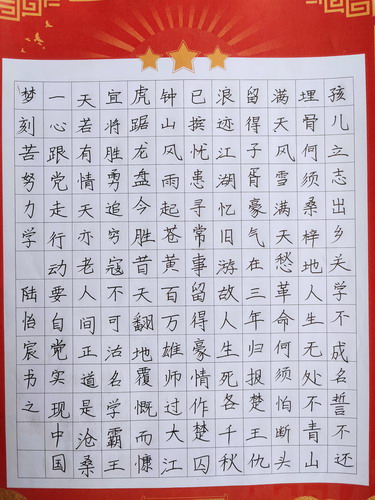 孩儿立志出乡关学不成名誓不还
埋骨何须桑梓地人生无处不青山
满天风雪满天愁革命何须怕断头
留得子胥豪气在三年归报楚王仇
浪迹江湖忆旧游故人生死各千秋
已摈忧患寻常事留得豪情作楚囚
钟山风雨起苍黄百万雄师过大江
虎踞龙盘今胜昔天翻地覆慨而慷
宜将胜勇追穷寇不可沽名学霸王
天若有情天亦老人间正道是沧桑
一心跟党走行动要自觉实现中国
梦刻苦努力学 陆怡宸书之